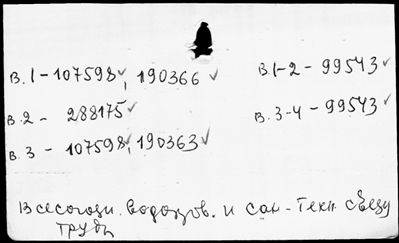 В. 1 - 107598✓, 190366 ✓
В. 2 - 288175✓
В. 3 - 107598✓, 190363✓
В. 1-2 - 99543✓
В. 3-4 - 99543✓
Всесоюзн. водопров. и сан-техн съезд
Труды